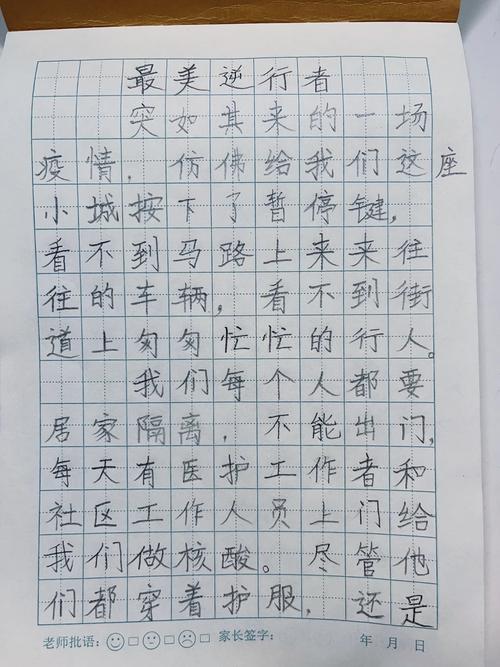 最美逆行者
突如其来的一场
疫情，仿佛给我们这座
小城按下了暂停键，
看不到马路上来来往
往的车辆，看不到街
道上匆匆忙忙的行人。
我们每个人都要
居家隔离，不能出门，
每天有医护工作者和
社区工作人员上门给
我们做核酸。尽管他
们都穿着护服，还是
老师批语：☺□😐□☹□ 家长签字： 年 月 日